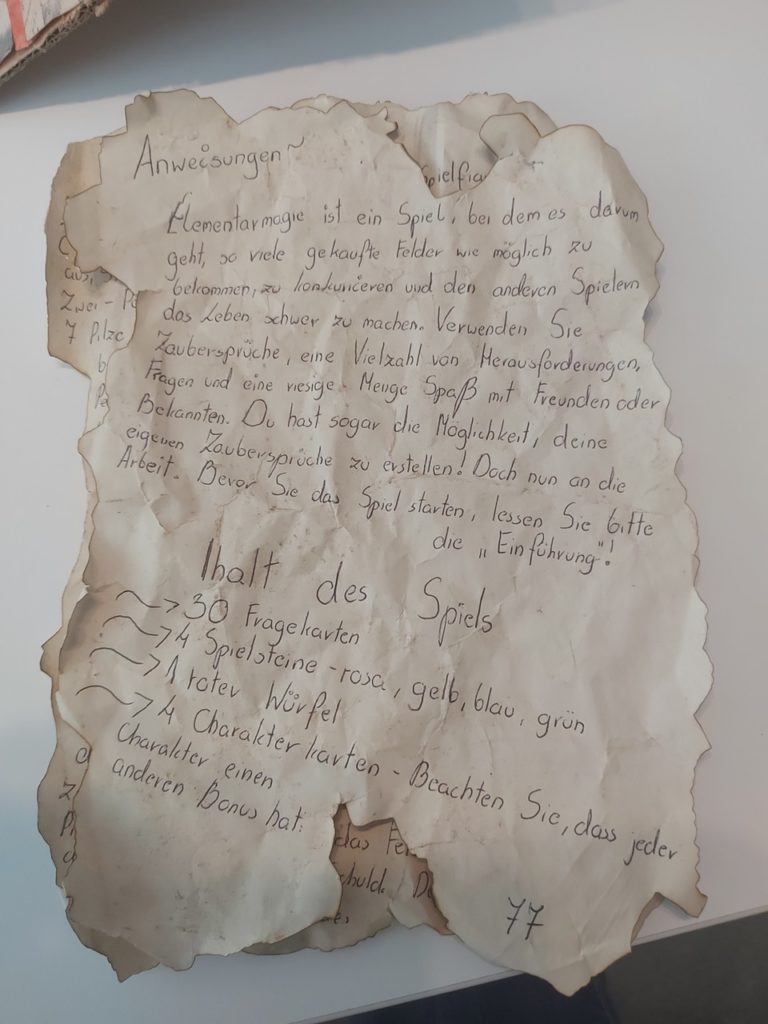 Anweisungen~
Spielfig
Elementarmagie ist ein Spiel, bei dem es darum
geht, so viele gekaufte Felder wie möglich zu
bekommen, zu konkurieren und den anderen Spielern
das Leben schwer zu machen. Verwenden Sie
Zaubersprüche, eine Vielzahl von Herausforderungen,
Fragen und eine riesige Menge Spaß mit Freunden oder
Bekannten. Du hast sogar die Möglichkeit, deine
eigenen Zaubersprüche zu erstellen! Doch nun an die
Arbeit. Bevor Sie das Spiel starten, lessen Sie bitte
die „Einführung"!
Ihalt des Spiels
~> 30 Fragekarten
~> 4 Spielsteine - rosa, gelb, blau, grün
~> 1 roter Würfel
~> 4 Charakterkarten - Beachten Sie, dass jeder
Charakter einen
anderen Bonus hat.
77
aus,
Zwei - P
7 Pilze
das Fe
chuld. D